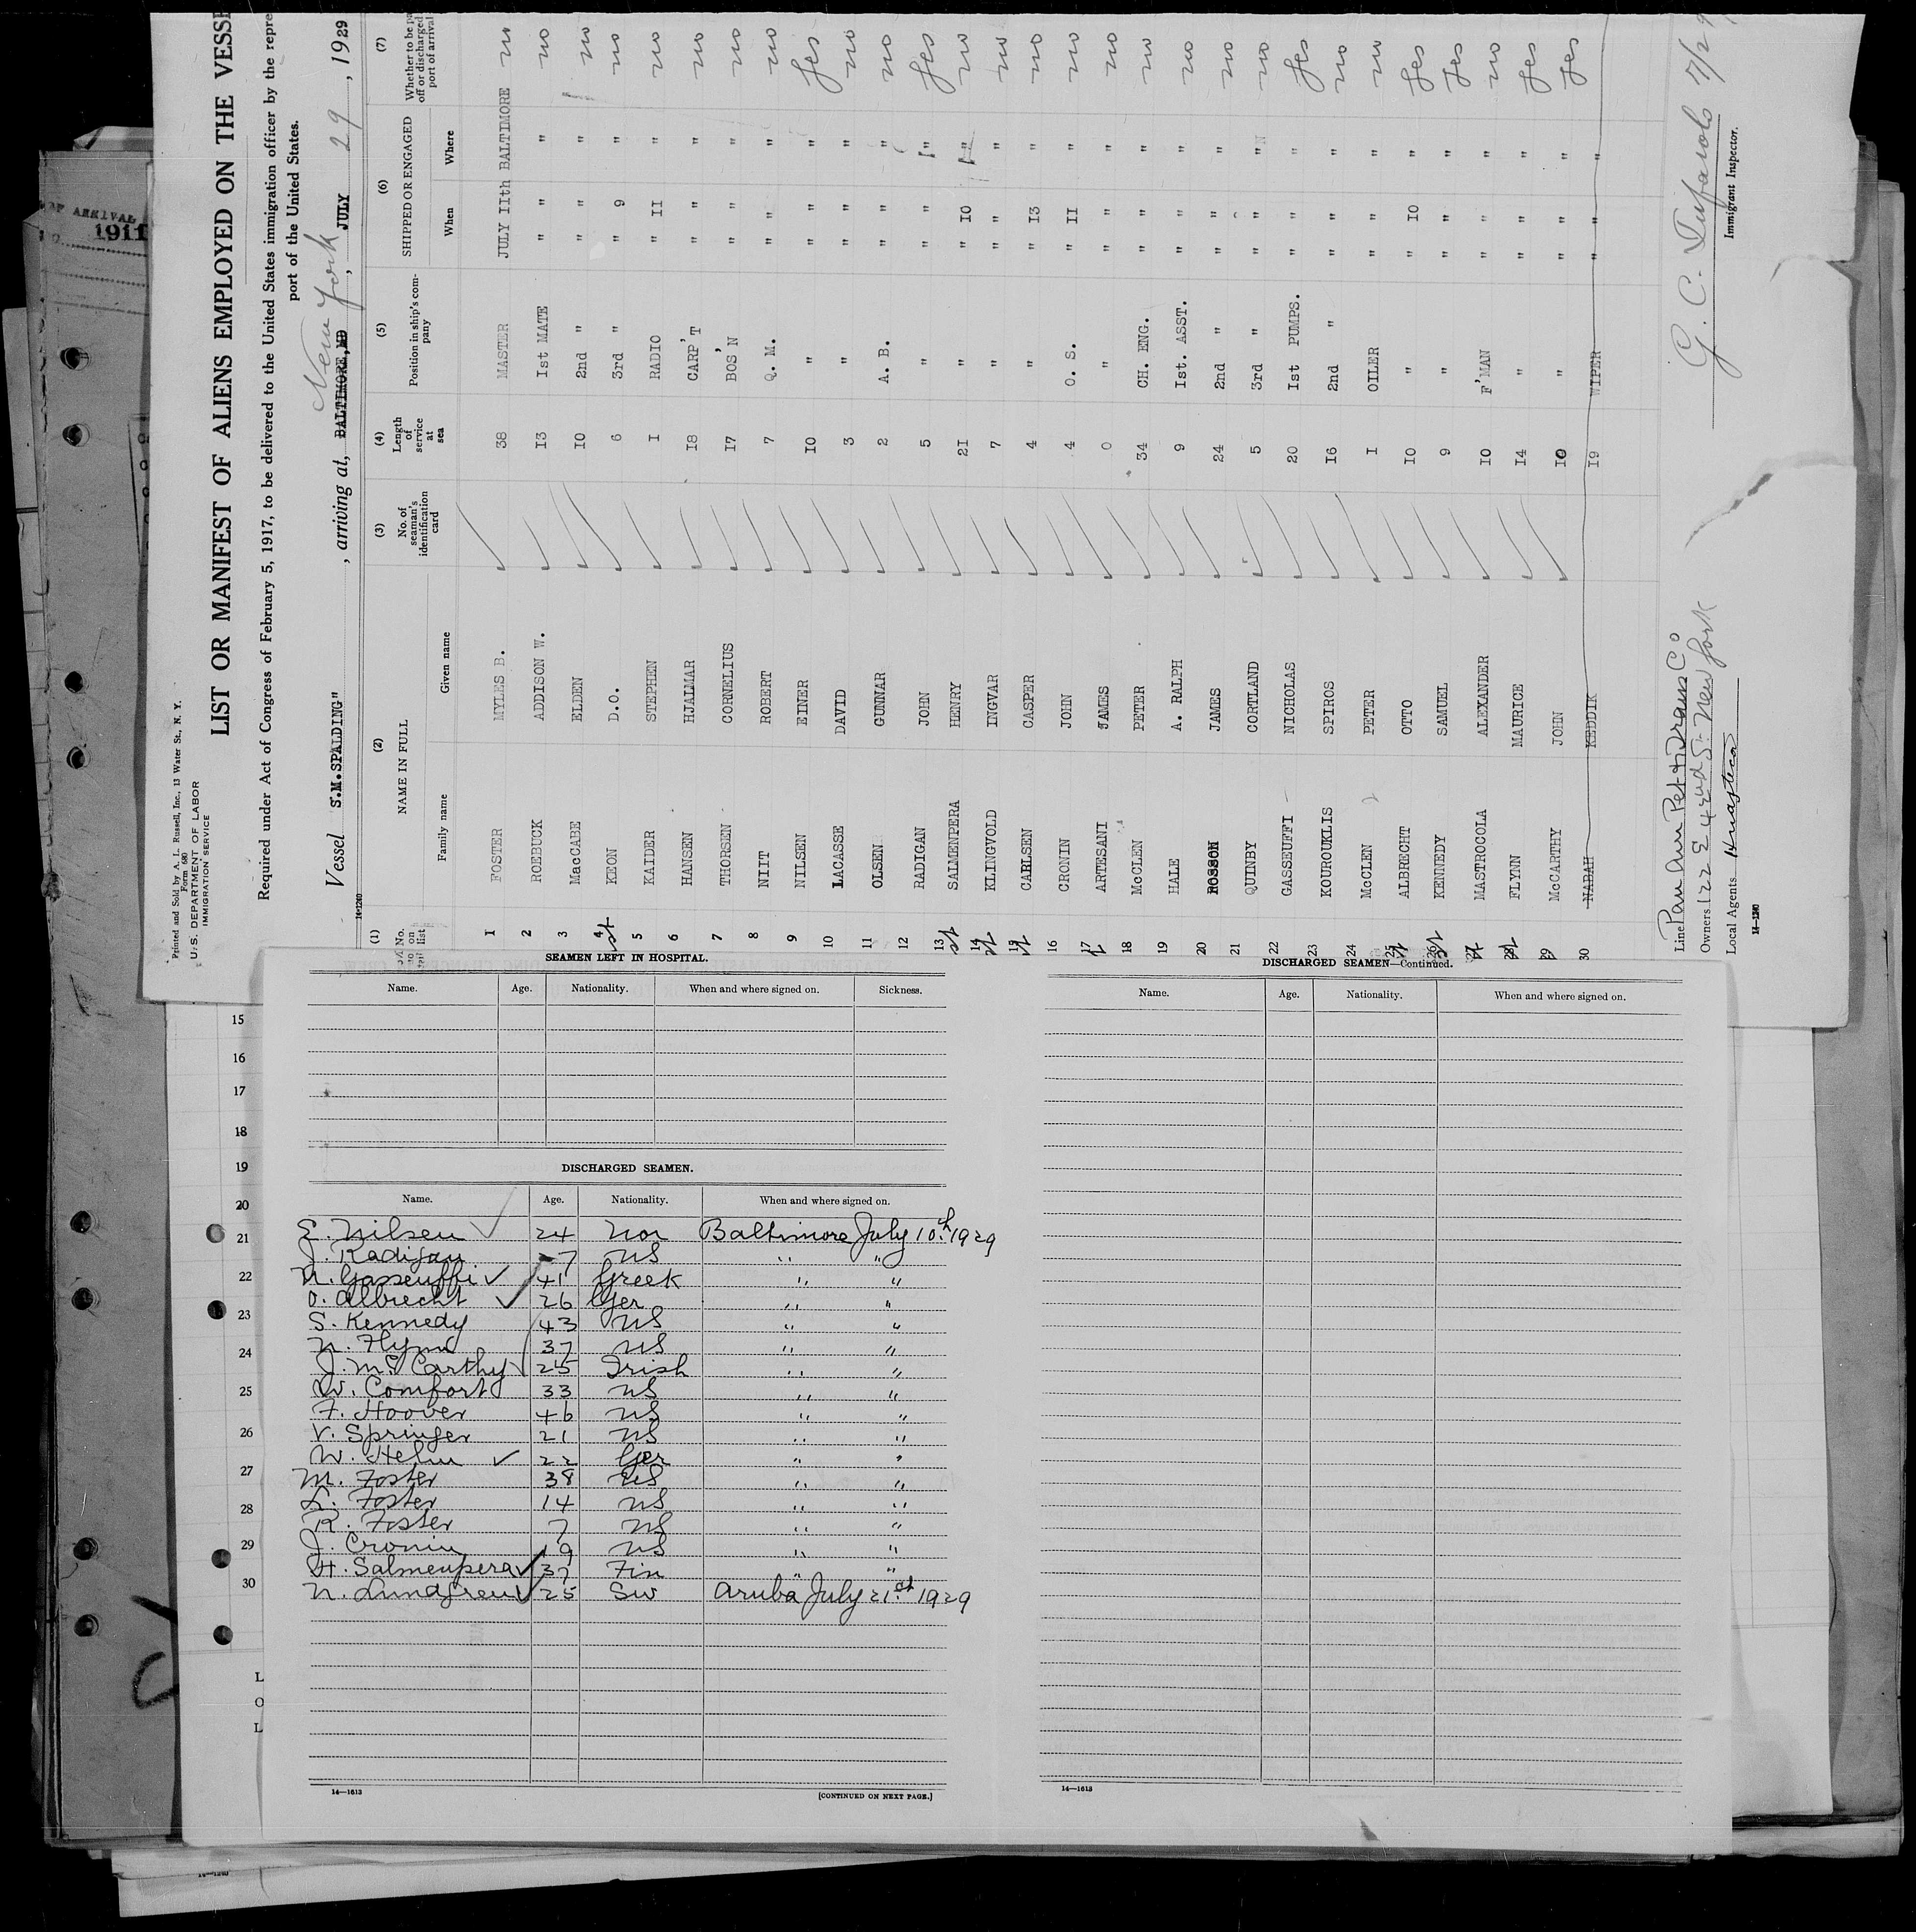 OF ARRIVAL
1911
Printed and Sold by A. L. Russell, Inc., 13 Water St., N. Y.
Form 680
U. S. DEPARTMENT OF LABOR
IMMIGRATION SERVICE
LIST OR MANIFEST OF ALIENS EMPLOYED ON THE VESSE
Required under Act of Congress of February 5, 1917, to be delivered to the United States immigration officer by the repre
port of the United States.
New York
Vessel S.M.SPALDING" , arriving at, BALTIMORE,MD , JULY 29 , 1929
14-1240
(1) (2) (3) (4) (5) (6) (7)
No. on list NAME IN FULL No. of seaman's identification card Length of service at sea Position in ship's company SHIPPED OR ENGAGED Whether to be pa off or discharged port of arrival
Family name Given name When Where
1 FOSTER MYLES B. 38 MASTER JULY 11th BALTIMORE no
2 ROEBUCK ADDISON W. 13 1st MATE " " " no
3 MacCABE ELDEN 10 2nd " " " " no
4 st KEON D.O. 6 3rd " " 9 " no
5 KAIDER STEPHEN 1 RADIO " 11 " no
6 HANSEN HJALMAR 18 CARP'T " " " no
7 THORSEN CORNELIUS 17 BOS'N " " " no
8 NIIT ROBERT 7 Q. M. " " " no
9 NILSEN EINER 10 " " " " yes
10 LACASSE DAVID 3 " " " " no
11 OLSEN GUNNAR 2 A. B. " " " no
12 RADIGAN JOHN 5 " " " " yes
13 st SALMENPERA HENRY 21 " " 10 " no
14 st KLINGVOLD INGVAR 7 " " " " no
15 st CARLSEN CASPER 4 " " 13 " no
16 CRONIN JOHN 4 O. S. " 11 " no
17 ARTESANI JAMES 0 " " " " no
18 McCLEN PETER 34 CH. ENG. " " " no
19 HALE A. RALPH 9 1st. ASST. " " " no
20 ROSSON JAMES 24 2nd " " " " no
21 QUINBY CORTLAND 5 3rd " " " " no
22 GASSEUFFI NICHOLAS 20 1st PUMPS. " " " yes
23 KOUROUKLIS SPIROS 16 2nd " " " " no
24 McCLEN PETER 1 OILER " " " no
25 st ALBRECHT OTTO 10 " " 10 " yes
26 st KENNEDY SAMUEL 9 " " " " yes
27 MASTROCOLA ALEXANDER 10 F'MAN " " " no
28 FLYNN MAURICE 14 " " " " yes
29 McCARTHY JOHN 10 " " " " yes
30 NABAH KEDDIK 19 WIPER " " "
Line Pan Am Pet & Trans Co
Owners 122 E 42nd St New York
Local Agents Huasteca
14-1240
G. C. 7/29
Immigrant Inspector.
15
16
17
18
19
20
21
22
23
24
25
26
27
28
29
30
L
O
L
SEAMEN LEFT IN HOSPITAL.
Name. Age. Nationality. When and where signed on. Sickness.
DISCHARGED SEAMEN.
Name. Age. Nationality. When and where signed on.
E. Nilsen 24 Nor Baltimore July 10th 1929
J. Radigan 7 US " "
N. Gasseuffi 41 Greek " "
O. Albrecht 26 Ger " "
S. Kennedy 43 US " "
M. Flynn 37 US " "
J. McCarthy 25 Irish " "
W. Comfort 33 US " "
F. Hoover 46 US " "
V. Springer 21 US " "
W. Helm 22 Ger " "
M. Foster 38 US " "
L. Foster 14 US " "
R. Foster 7 US " "
J. Cronin 19 US " "
H. Salmenpera 37 Fin " "
N. Lundgren 25 Sw Aruba July 21st 1929
14—1613
[CONTINUED ON NEXT PAGE.]
DISCHARGED SEAMEN—Continued.
Name. Age. Nationality. When and where signed on.
14—1613
14-1240